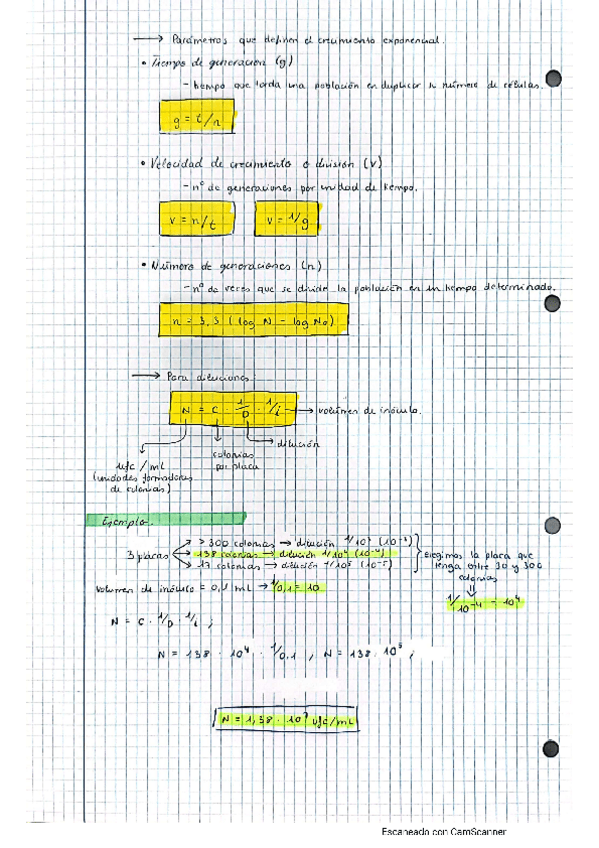 → Parámetros que definen el crecimiento exponencial.
• Tiempo de generación (g)
- tiempo que tarda una población en duplicar su número de células.
g = t/n
• Velocidad de crecimiento o división (v)
- nº de generaciones por unidad de tiempo.
v = n/t v = 1/g
• Número de generaciones (n)
- nº de veces que se divide la población en un tiempo determinado.
n = 3,3 (log N - log N₀)
→ Para diluciones:
N = C · 1/D · 1/i → volumen de inóculo.
dilución
colonias por placa
ufc/mL
(unidades formadoras
de colonias)
Ejemplo.
> 300 colonias → dilución 1/10³ (10⁻³)
3 placas 138 colonias → dilución 1/10⁴ (10⁻⁴)
17 colonias → dilución 1/10⁵ (10⁻⁵)
elegimos la placa que
tenga entre 30 y 300
colonias
Volumen de inóculo = 0,1 mL → 1/0,1 = 10
1/10⁻⁴ = 10⁴
N = C · 1/D · 1/i ;
N = 138 · 10⁴ · 1/0,1 , N = 138 · 10⁵ ;
N = 1,38 · 10⁷ ufc/mL
Escaneado con CamScanner